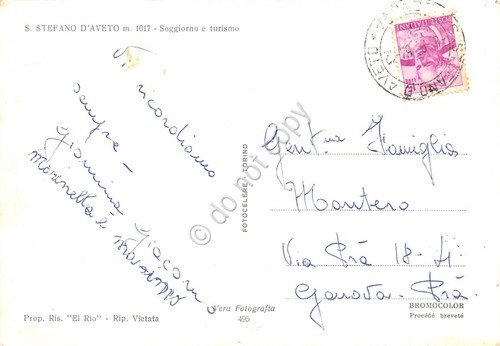 S. STEFANO D'AVETO m. 1017 - Soggiorno e turismo
Vi ricordiamo
sempre -
Giannina Giacomo
Marinella e
Gent.ma Famiglia
Montero
Via Prà 18-4
Genova-Prà
FOTOCELERE - TORINO
POSTE ITALIANE
D'AVETO
do not copy
Prop. Ris. "El Rio" - Rip. Vietata
Vera Fotografia
495
BROMOCOLOR
Procédé breveté